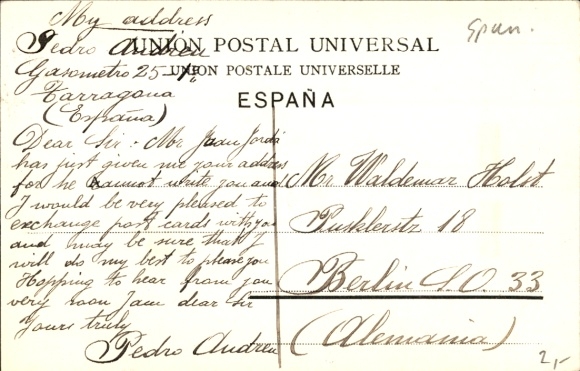 My address
Pedro Andreu
Gasometro 25 - 1º
Tarragona
(España)
UNION POSTAL UNIVERSAL
UNION POSTALE UNIVERSELLE
ESPAÑA
Span.
Dear Sir: Mr Juan Jordá
has just given me your address
for he cannot write you and
I would be very pleased to
exchange post cards with you
and may be sure that I
will do my best to please you
Hopping to hear from you
very soon I am dear sir
Yours truly
Pedro Andreu
Mr Waldemar Holst
Pusklerstr 18
Berlin S.O. 33
(Alemania)
2,-